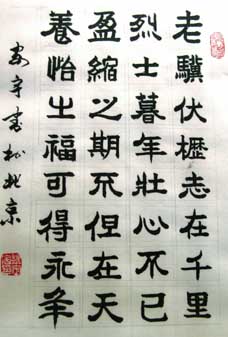 老驥伏櫪志在千里
烈士暮年壯心不已
盈縮之期不但在天
養怡之福可得永年
書於北京